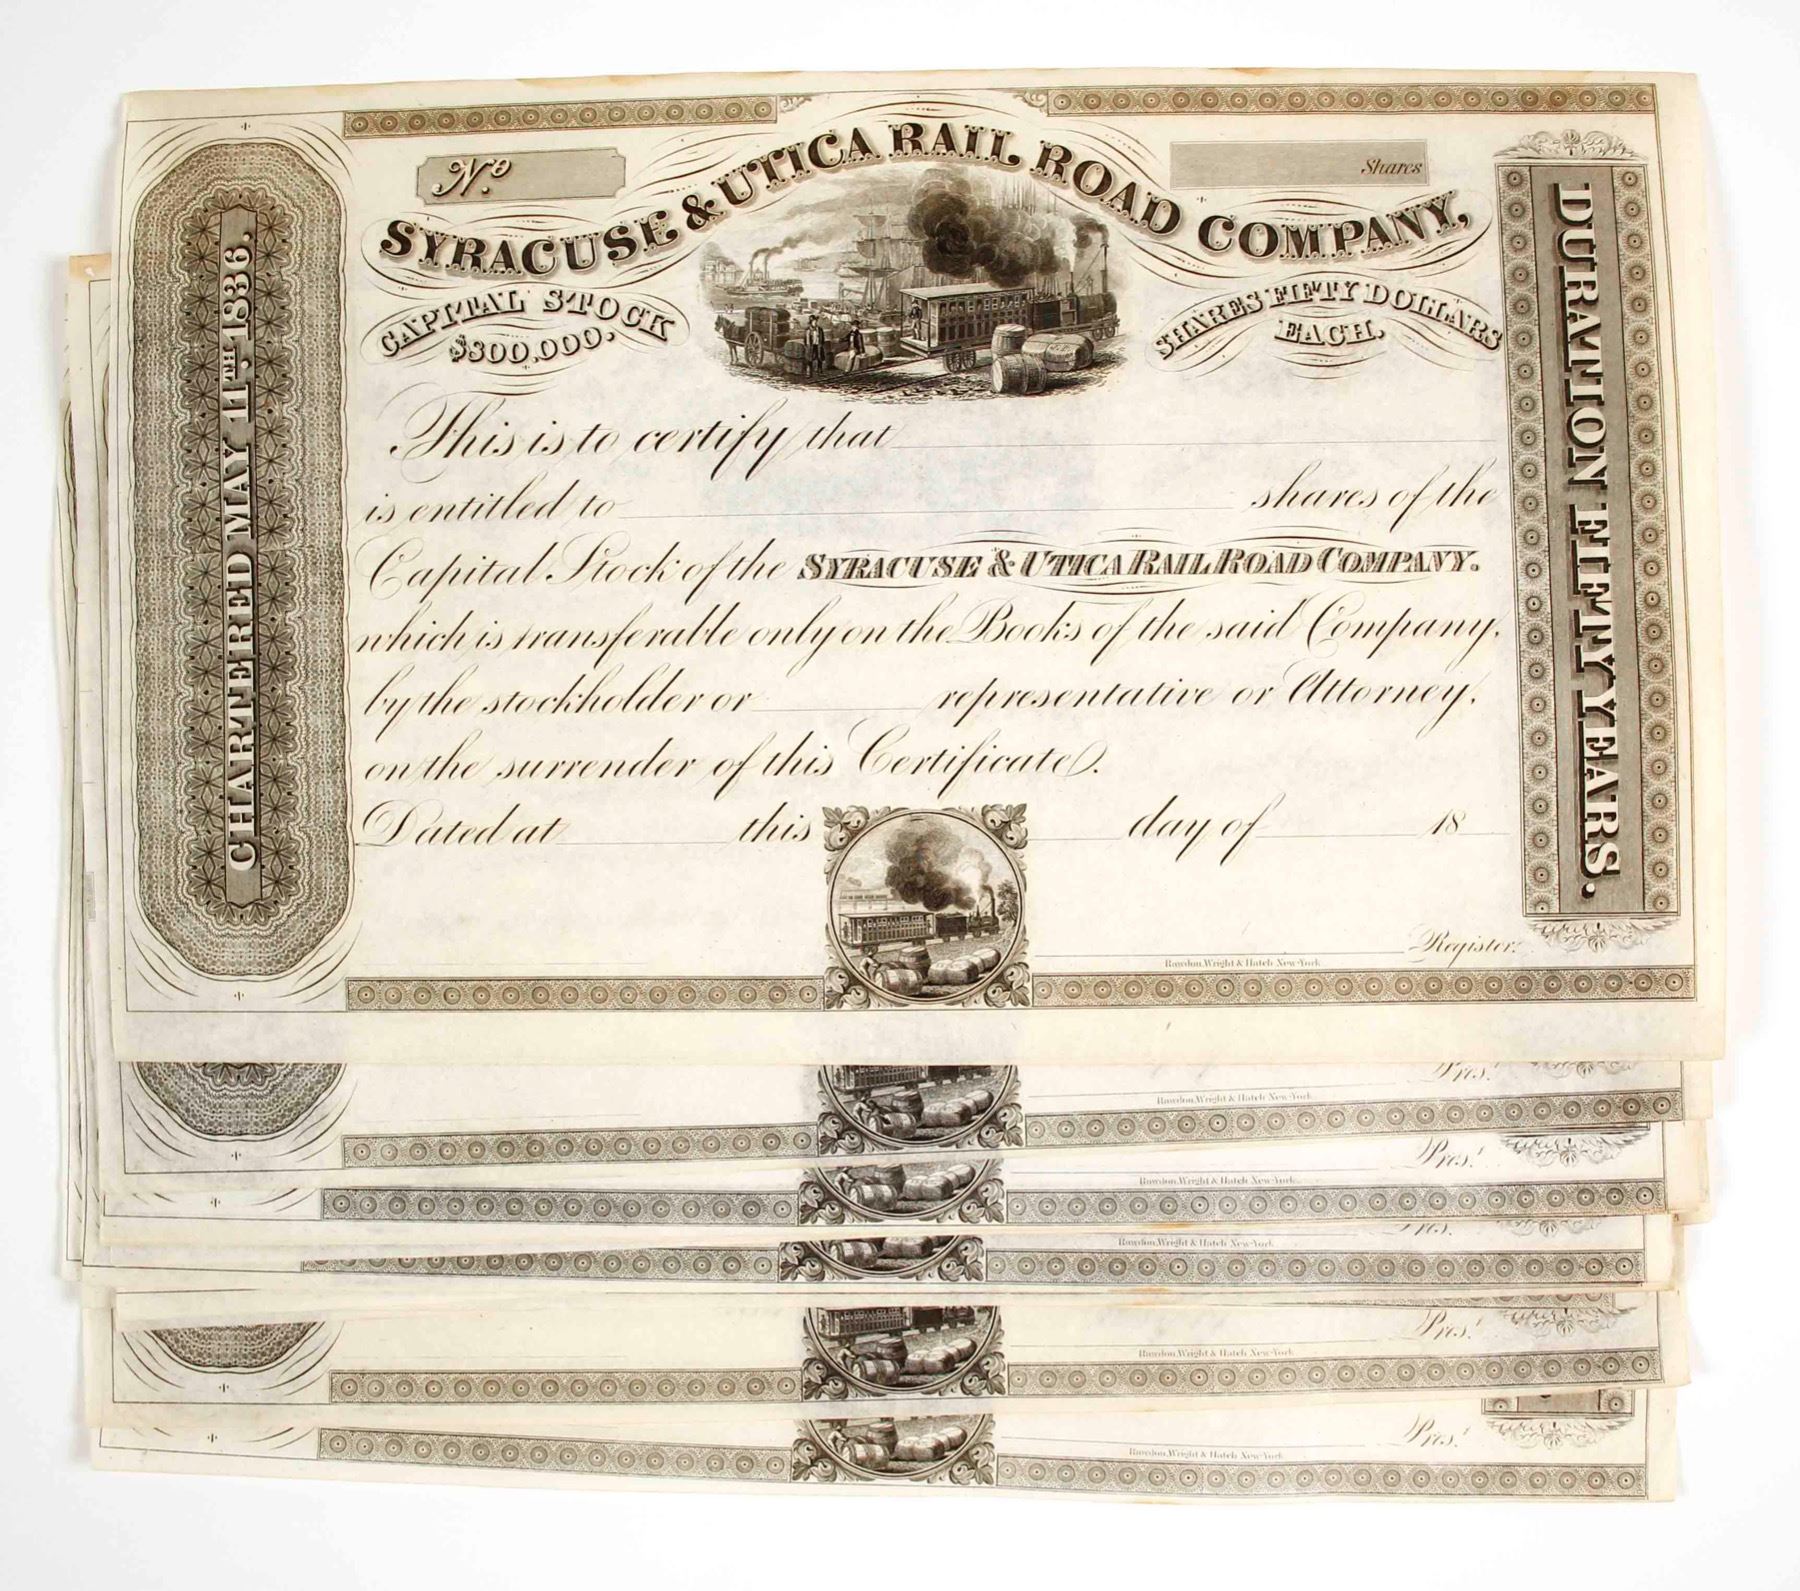 No.
Shares
SYRACUSE & UTICA RAIL ROAD COMPANY,
CAPITAL STOCK
$800,000.
SHARES FIFTY DOLLARS
EACH.
CHARTERED MAY 11TH. 1836.
DURATION FIFTY YEARS.
This is to certify that
is entitled to shares of the
Capital Stock of the SYRACUSE & UTICA RAIL ROAD COMPANY.
which is transferable only on the Books of the said Company,
by the stockholder or representative or Attorney,
on the surrender of this Certificate.
Dated at this day of 18
Register.
Rawdon, Wright & Hatch New-York
Pres.t
Rawdon, Wright & Hatch New-York
Pres.t
Rawdon, Wright & Hatch New-York
Pres.
Rawdon, Wright & Hatch New-York
Pres.t
Rawdon, Wright & Hatch New-York
Pres.t
Rawdon, Wright & Hatch New-York